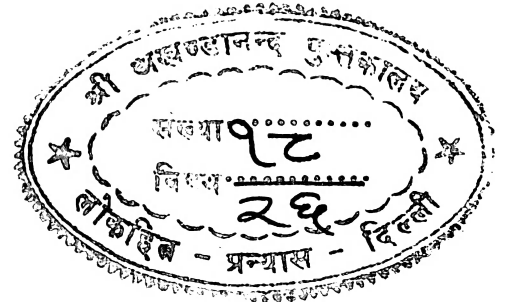 श्री अखण्डानन्द पुस्तकालय
संख्या १८
विषय २६
लोकहित - प्रन्यास - दिल्ली